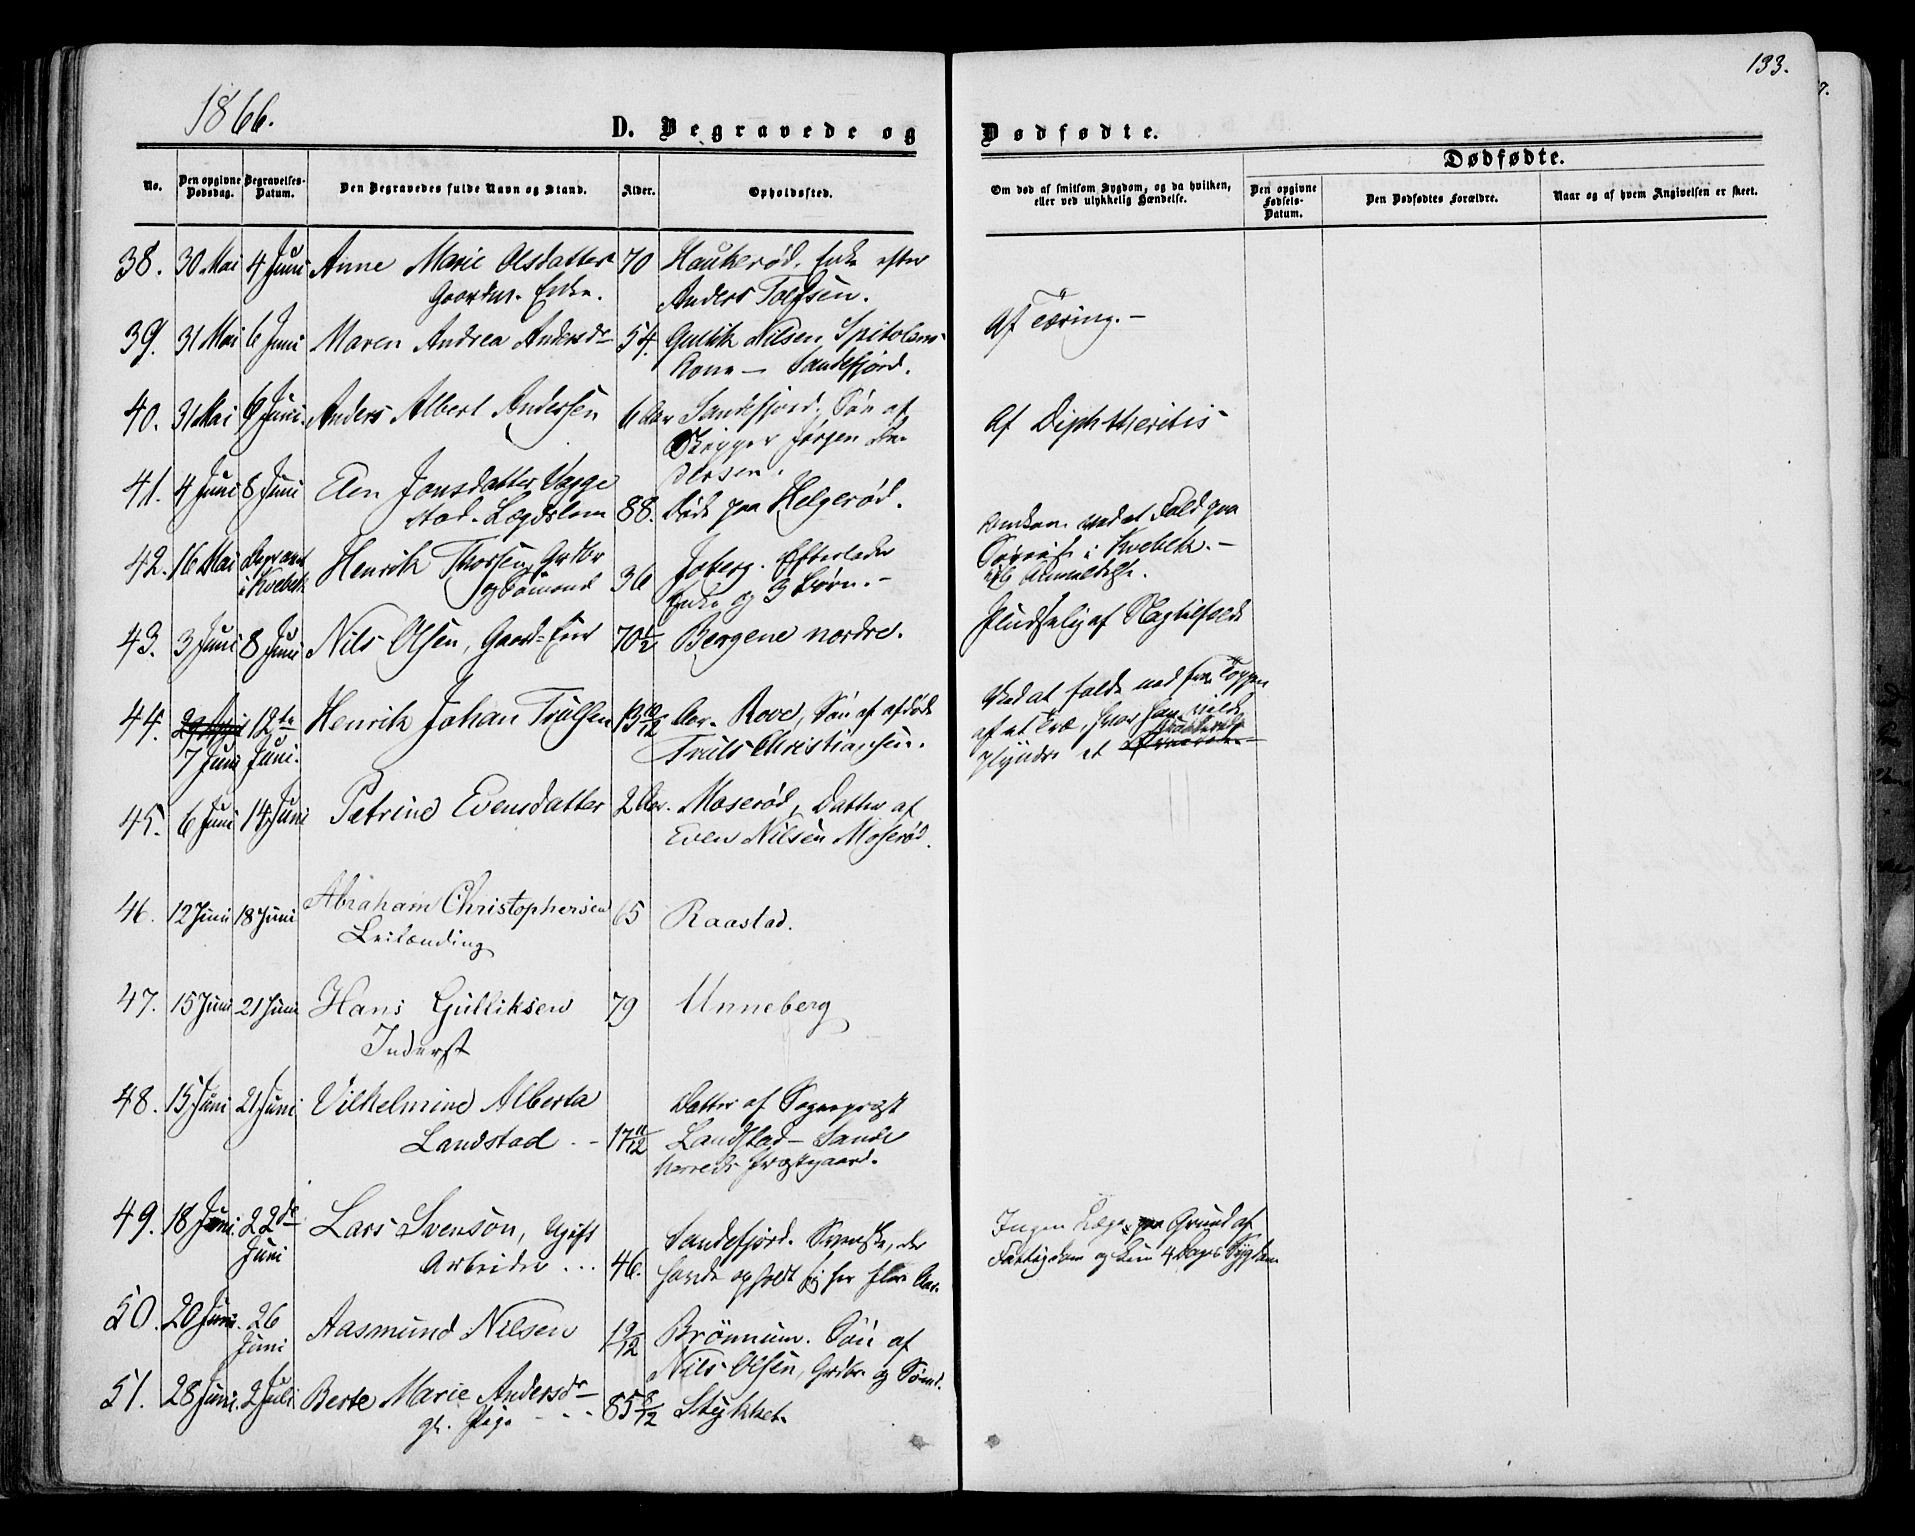 1866.
133.
D. Begravede og Dødfødte.
Dødfødte.
No.
Den opgivne Dødsdag.
Begravelses-Datum.
Den Begravedes fulde Navn og Stand.
Alder.
Opholdssted.
Om død af smitsom Sygdom, og da hvilken,
eller ved ulykkelig Hændelse.
Den opgivne Fødsels-Datum.
Den Dødfødtes Forældre.
Naar og af hvem Angivelsen er skeet.
38. 30 Mai 4 Juni Anne Marie Olsdatter 70 Haukerød. Enke efter
Gaardm. Enke. Anders Tolfsen.
39. 31 Mai 6 Juni Maren Andrea Andersdr 54. Gullik Nilsen Spitolens Af Tæring.-
Kone - Sandefjord.
40. 31 Mai 6 Juni. Anders Albert Andersen 6 Aar Sandefjord, Søn af Af Diphtheritis
Skipper Jørgen An
dersen.
41. 4 Juni 8 Juni Elen Jonsdatter Vegge
stad. Lægdslem 88. Døde paa Helgerød.
42. 16 Mai Begravet Henrik Thorsen, Grdbr Joberg. Efterlader
i Kvebek og Sømand 36 Enke og 3 Børn.-
ved et Fald paa
i Kvebek.-
43. 3 Juni 8 Juni Nils Olsen, Gaard- 70 1/2 Bergene nordre. Pludselig af Slagtilfælde
44. 29 April 12te Henrik Johan Trulsen 13 10/12 Aar. Rove, Søn af afdøde
7 Juni Juni. Truls Christiansen.
Ved at falde ned fra Toppen
af et Træ, hvor han vilde
plyndre et
45. 6 Juni 14 Juni Petrine Evensdatter 2 Aar. Moserød, Datter af
Even Nilsen Moserød.
46. 12 Juni 18 Juni Abraham Christophersen 65 Raastad.
Leilænding
47. 15 Juni 21 Juni Hans Gulliksen 79 Unneberg
Inderst
48. 15 Juni 21 Juni Vilhelmine Alberta Datter af Sognepræst
Landstad .- 17 11/12 Landstad - Sande
herreds Præstegaard.
49. 18 Juni. 22de Lars Svenson, Ugift Sandefjord. Svenske, der
Juni Arbeider ... 46. havde opholdt sig her flere Aar.
Ingen Læge, paa Grund af
Fattigdom og kun 4 Dages Sygdom
50. 20 Juni. 26 Aasmund Nilsen 19/12 Brønnum. Søn af
Juni Nils Olsen, Grdbr og Sømd.
51. 28 Juni. 2 Juli Berte Marie Andersdr 85 8/12 Stykket.
gl. Pige - - -